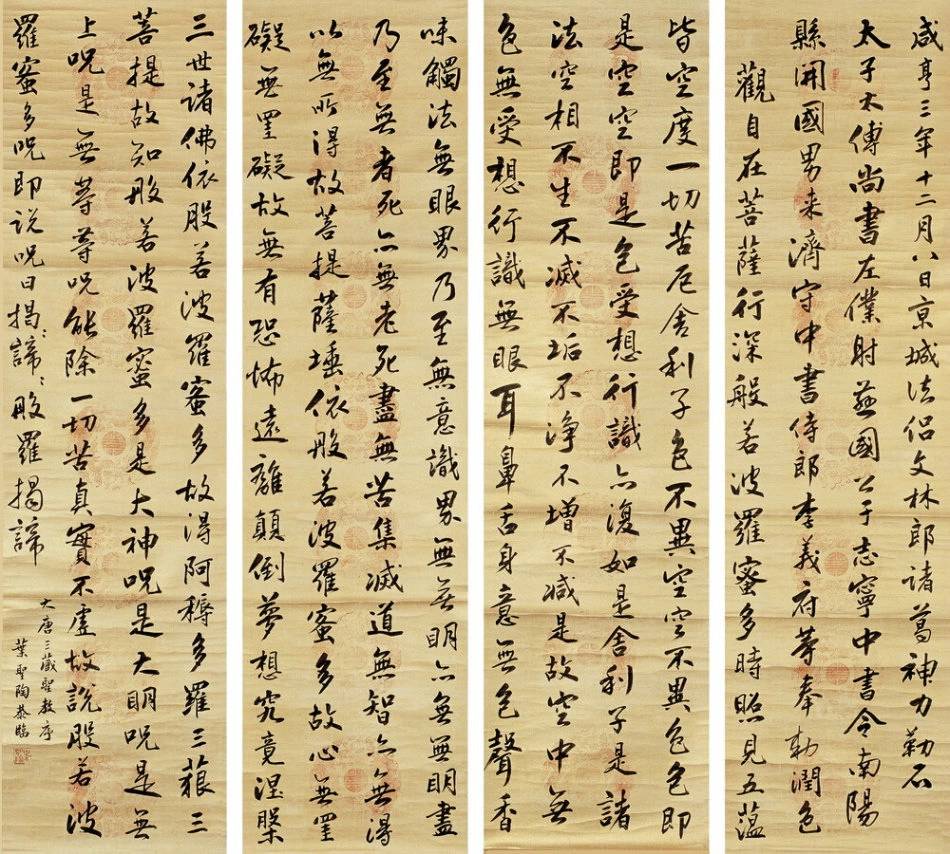 咸亨三年十二月八日京城法侶文林郎諸葛神力勒石
太子太傅尚書左僕射燕國公于志寧中書令南陽
縣開國男来濟守中書侍郎李義府等奉勅潤色
觀自在菩薩行深般若波羅蜜多時照見五藴
皆空度一切苦厄舍利子色不異空空不異色色即
是空空即是色受想行識亦復如是舍利子是諸
法空相不生不滅不垢不淨不增不減是故空中無
色無受想行識無眼耳鼻舌身意無色聲香
味觸法無眼界乃至無意識界無無明亦無無明盡
乃至無者死亦無老死盡無苦集滅道無智亦無得
以無所得故菩提薩埵依般若波羅蜜多故心無罣
礙無罣礙故無有恐怖遠離顛倒夢想究竟涅槃
三世諸佛依般若波羅蜜多故得阿耨多羅三藐三
菩提故知般若波羅蜜多是大神呪是大明呪是無
上呪是無等等呪能除一切苦真實不虛故說般若波
羅蜜多呪即說呪曰揭:諦:般羅揭諦
大唐三藏聖教序
葉聖陶恭臨